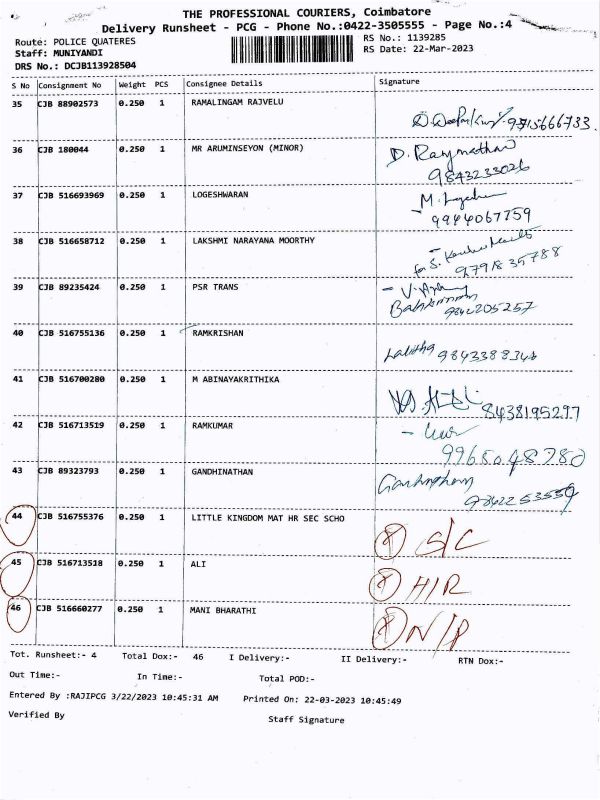 THE PROFESSIONAL COURIERS, Coimbatore
Delivery Runsheet - PCG - Phone No.:0422-3505555 - Page No.:4
Route: POLICE QUATERES RS No.: 1139285
Staff: MUNIYANDI RS Date: 22-Mar-2023
DRS No.: DCJB113928504
S No Consignment No Weight PCS Consignee Details Signature
35 CJB 88902573 0.250 1 RAMALINGAM RAJVELU
9715666733.
36 CJB 180044 0.250 1 MR ARUMINSEYON (MINOR)
9843233026
37 CJB 516693969 0.250 1 LOGESHWARAN
9944067759
38 CJB 516658712 0.250 1 LAKSHMI NARAYANA MOORTHY
9791835788
39 CJB 89235424 0.250 1 PSR TRANS
9842205257
40 CJB 516755136 0.250 1 RAMKRISHAN
Lalitha
41 CJB 516700280 0.250 1 M ABINAYAKRITHIKA
8438195297
42 CJB 516713519 0.250 1 RAMKUMAR
9965048780
43 CJB 89323793 0.250 1 GANDHINATHAN
44 CJB 516755376 0.250 1 LITTLE KINGDOM MAT HR SEC SCHO S/C
45 CJB 516713518 0.250 1 ALI H/R
46 CJB 516660277 0.250 1 MANI BHARATHI N/P
Tot. Runsheet:- 4 Total Dox:- 46 I Delivery:- II Delivery:- RTN Dox:-
Out Time:- In Time:- Total POD:-
Entered By :RAJIPCG 3/22/2023 10:45:31 AM Printed On: 22-03-2023 10:45:49
Verified By Staff Signature